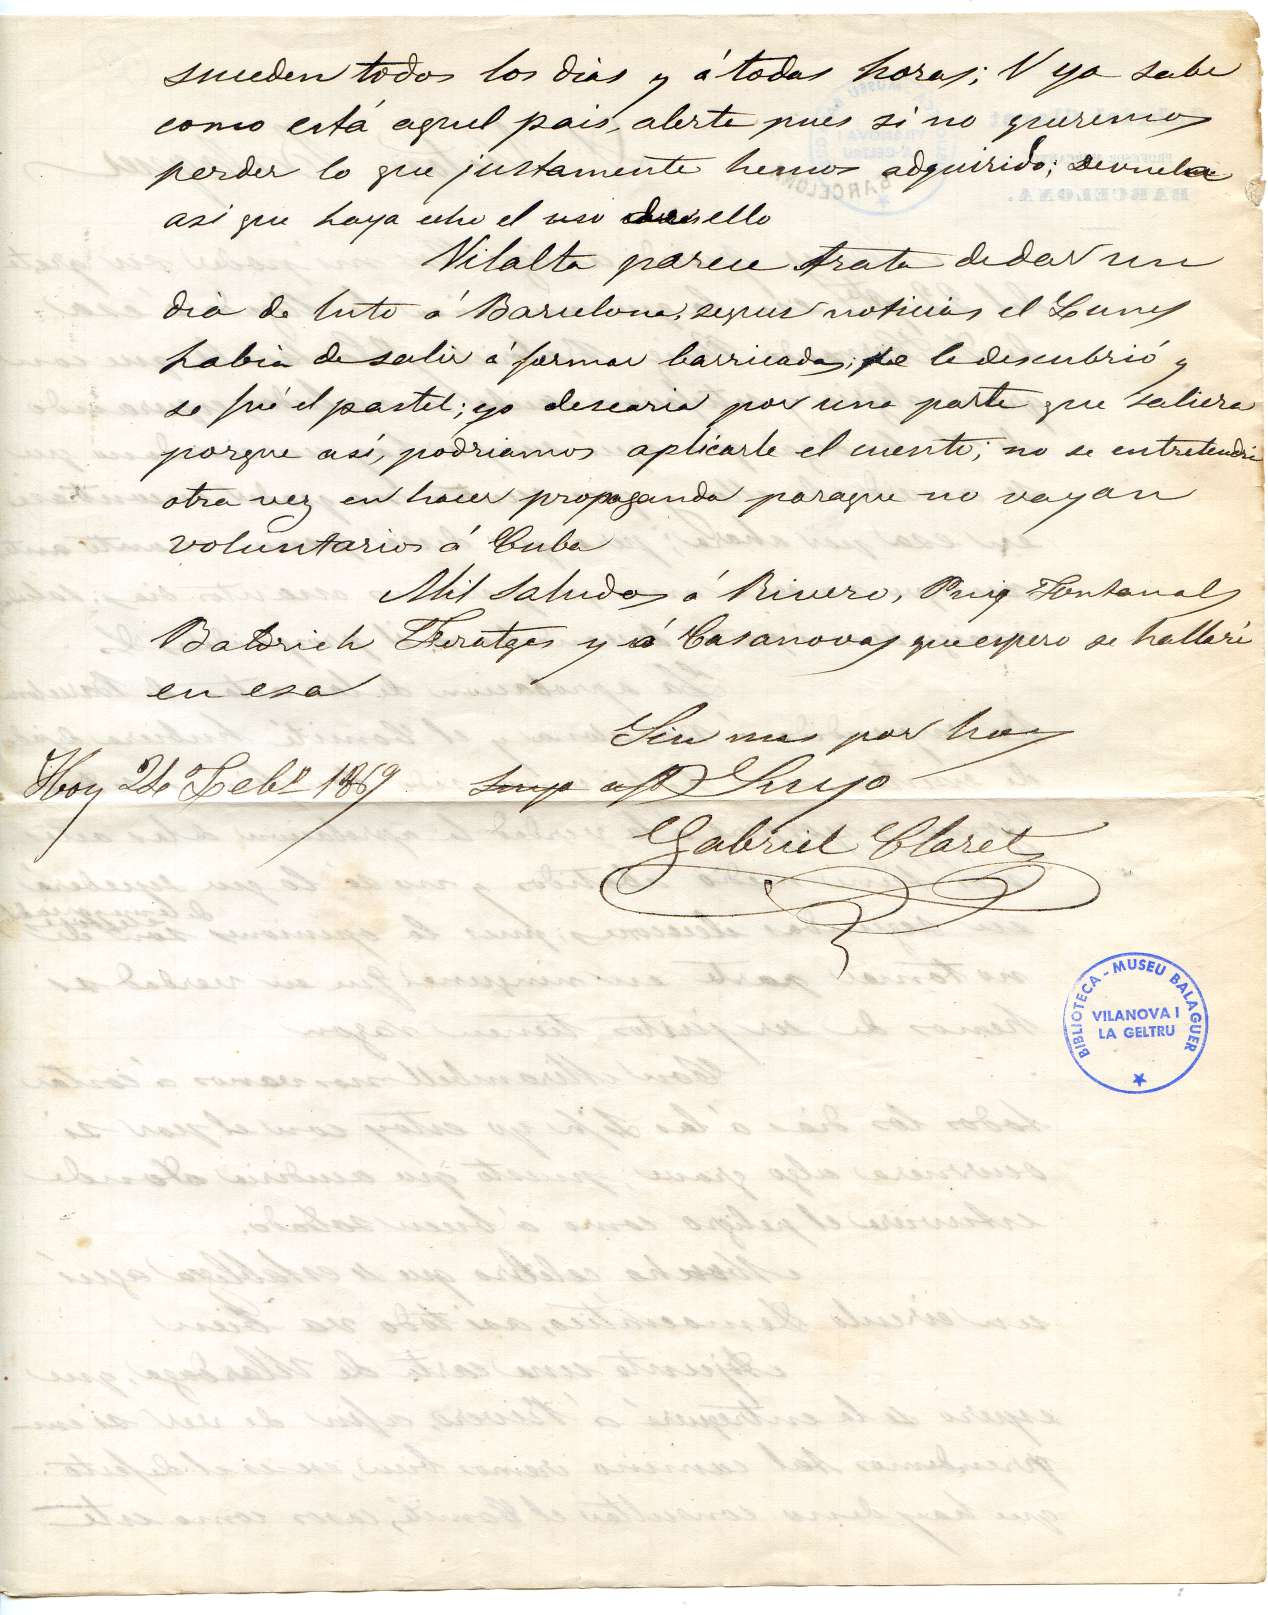 suceden todos los dias y á todas horas; V ya sabe
como está aquel pais, alerta pues si no queremos
perder lo que justamente hemos adquirido; devuelva
asi que haya echo el uso de ello
Vilalta parece trata de dar un
dia de luto á Barcelona, segun noticias el Lunes
habia de salir á formar barricadas; se le descubrió y
se fué el pastel; yo desearia por una parte que saliera
porque asi, podriamos aplicarle el cuento; no se entretendria
otra vez en hacer propaganda paraque no vayan
voluntarios á Cuba
Mil saludos á Rivero, Puig Fontanals
Baldrich Feratges y á Casanovas que espero se hallará
en esa
Sin mas por hoy
Hoy 24 Febº 1869 Suyo
Gabriel Claret
BIBLIOTECA - MUSEU BALAGUER
VILANOVA I
LA GELTRU